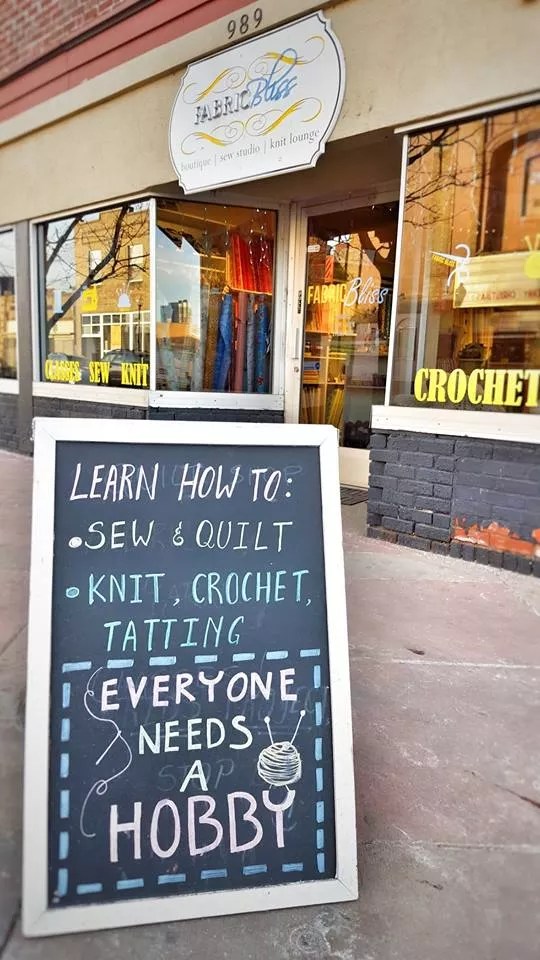 989
FABRIC Bliss
boutique | sew studio | knit lounge
FABRIC Bliss
CLASSES SEW KNIT
CROCHET
LEARN HOW TO:
•SEW & QUILT
•KNIT, CROCHET,
TATTING
EVERYONE
NEEDS
A
HOBBY